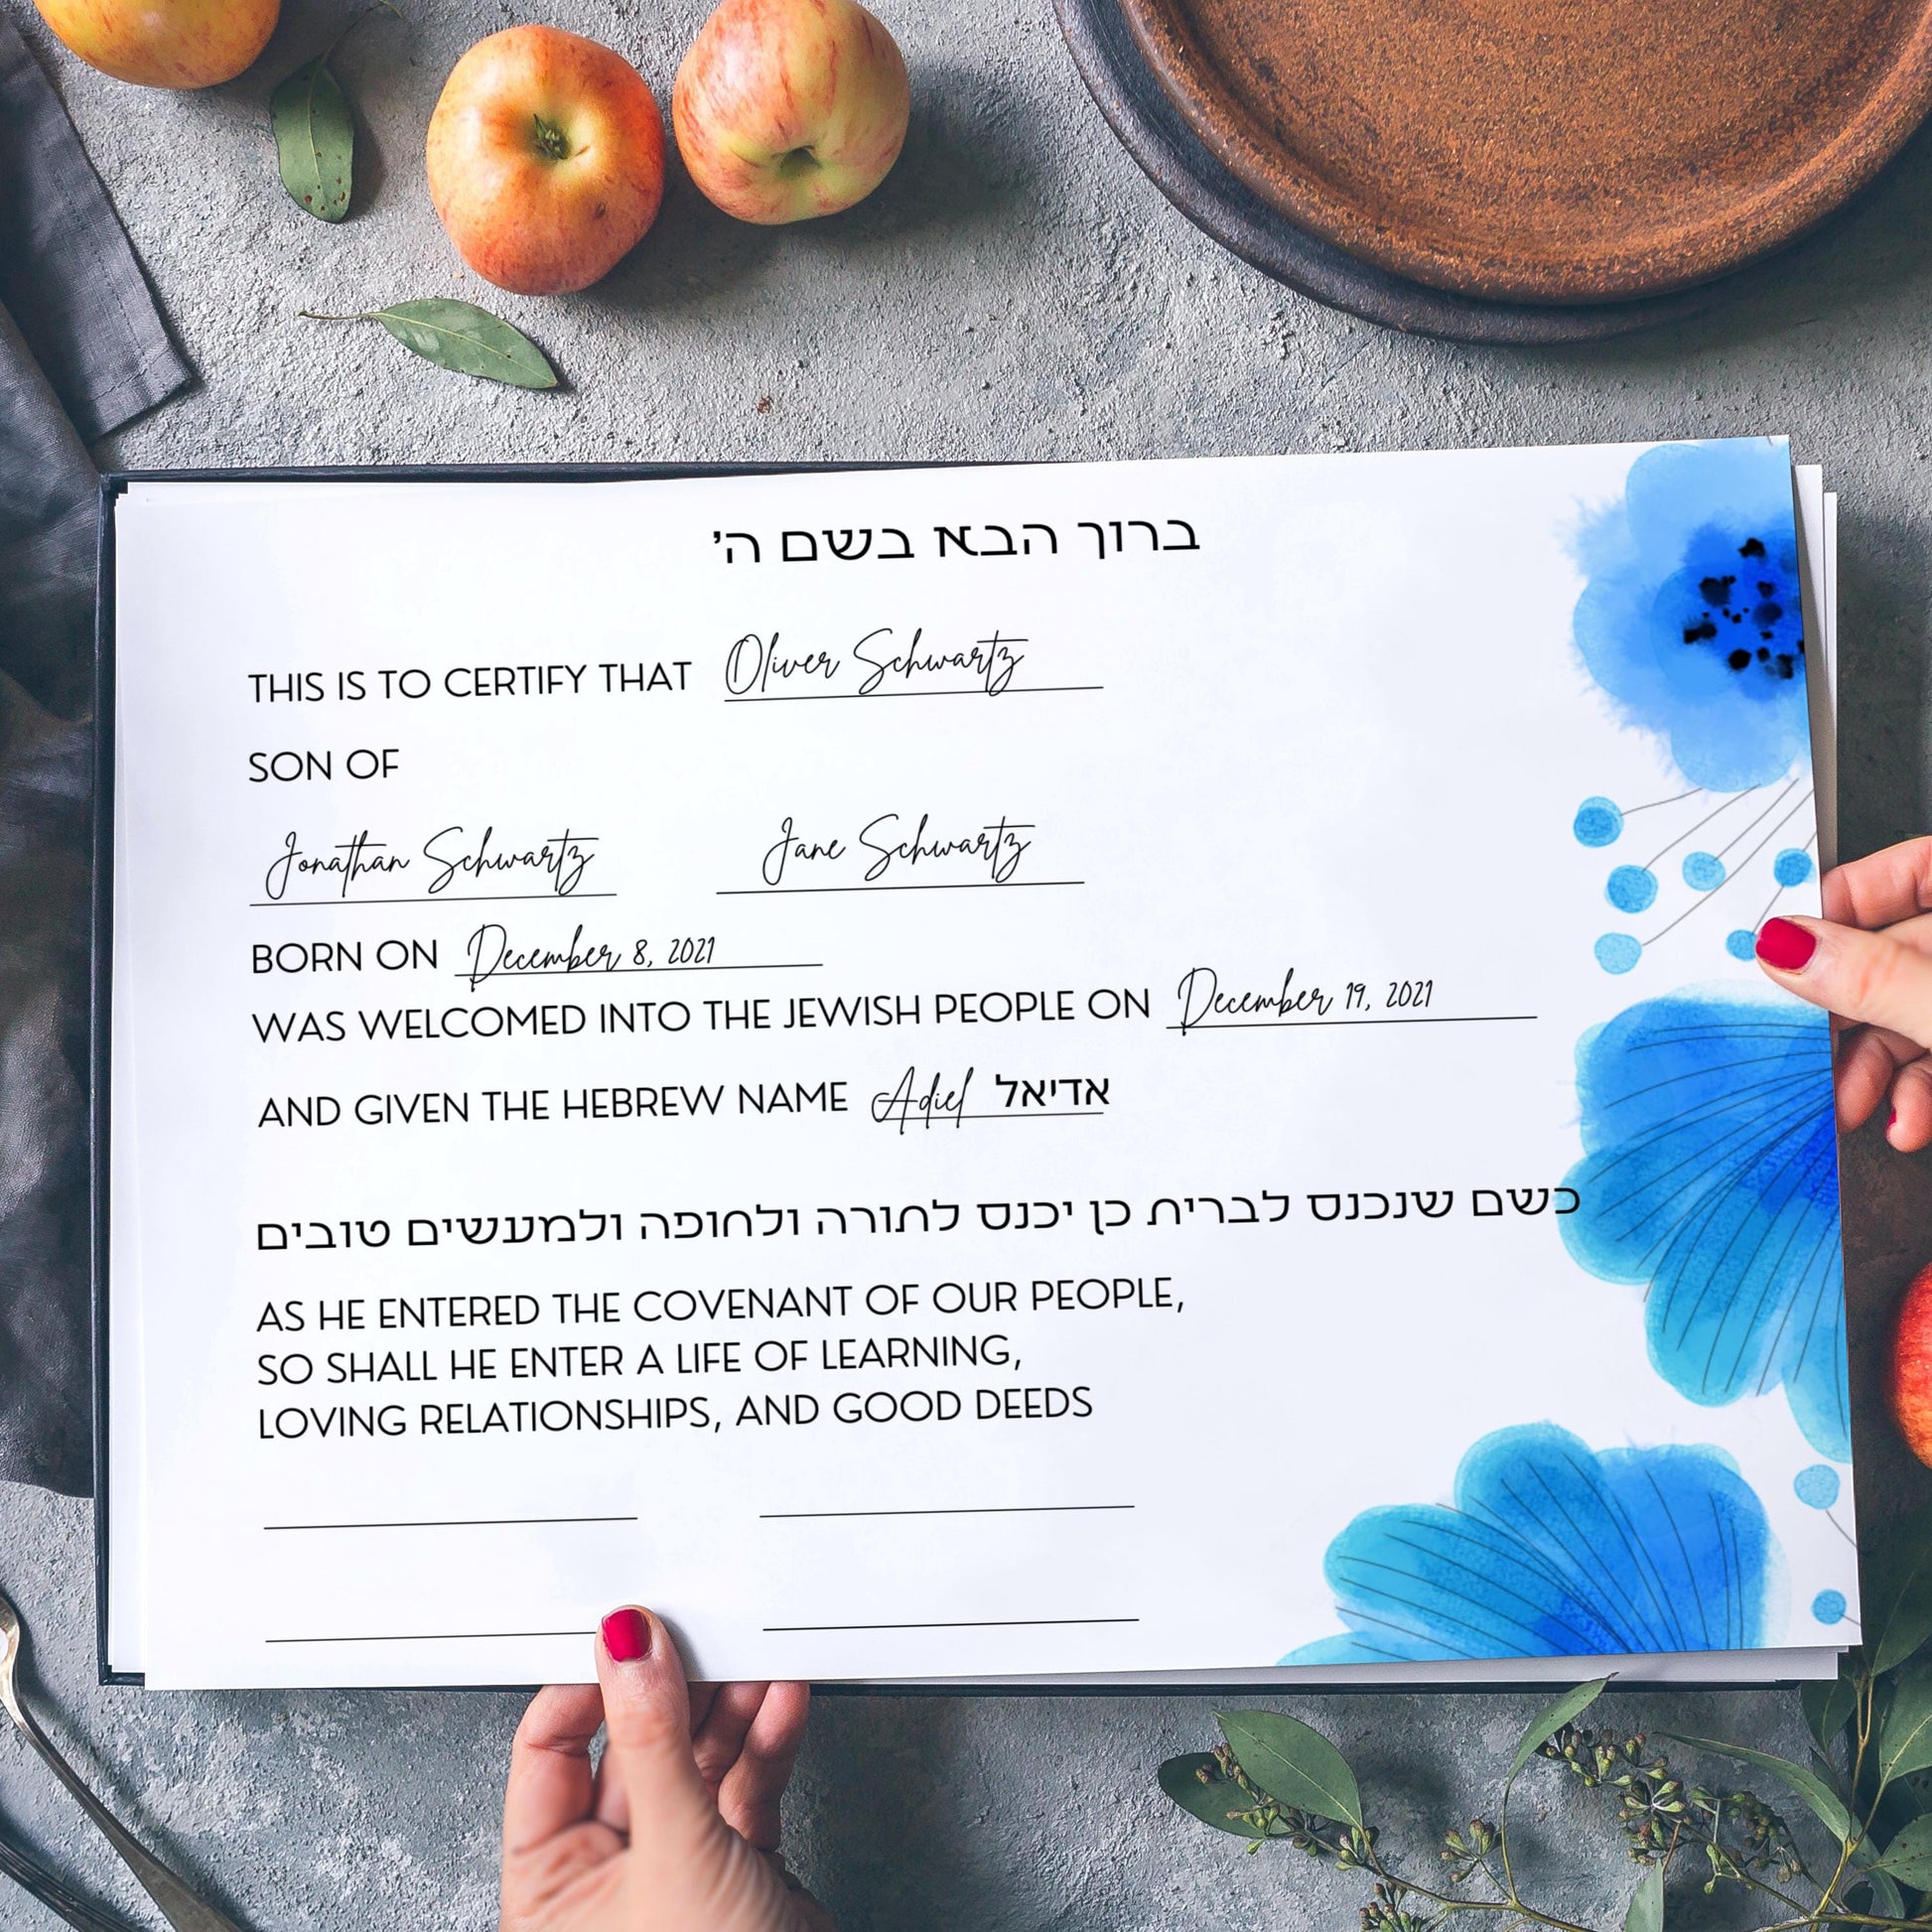 ברוך הבא בשם ה'
THIS IS TO CERTIFY THAT Oliver Schwartz
SON OF
Jonathan Schwartz Jane Schwartz
BORN ON December 8, 2021
WAS WELCOMED INTO THE JEWISH PEOPLE ON December 19, 2021
AND GIVEN THE HEBREW NAME Adiel אדיאל
כשם שנכנס לברית כן יכנס לתורה ולחופה ולמעשים טובים
AS HE ENTERED THE COVENANT OF OUR PEOPLE,
SO SHALL HE ENTER A LIFE OF LEARNING,
LOVING RELATIONSHIPS, AND GOOD DEEDS